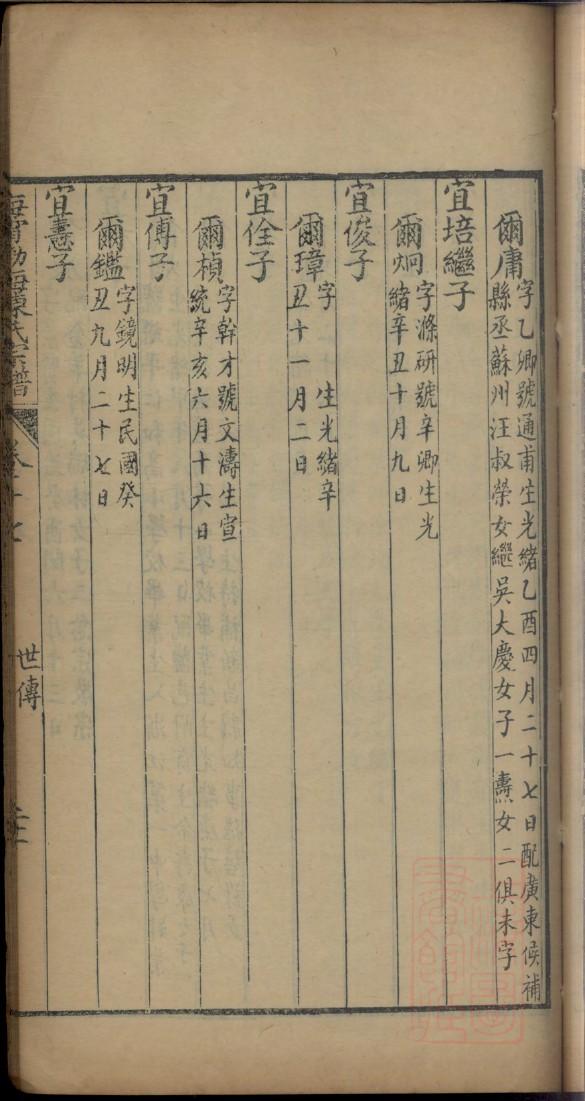 爾庸字乙卿號通甫生光緒乙酉四月二十七日配廣東候補
縣丞蘇州汪叔榮女繼吳大慶女子一燾女二俱未字
宜培繼子
爾炯字滌研號辛卿生光
緒辛丑十月九日
宜俊子
爾璋字 生光緒辛
丑十一月二日
宜佺子
爾楨字幹才號文濤生宣
統辛亥六月十六日
宜傅子
爾鑑字鏡明生民國癸
丑九月二十七日
宜憲子
海甯渤海陳氏宗譜 卷十七 世傳